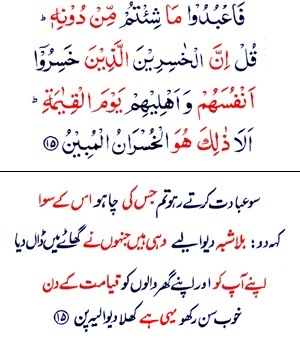 فَاعْبُدُوْا مَا شِئْتُمْ مِّنْ دُوْنِهٖ ؕ
قُلْ اِنَّ الْخٰسِرِیْنَ الَّذِیْنَ خَسِرُوْۤا
اَنْفُسَهُمْ وَ اَهْلِیْهِمْ یَوْمَ الْقِیٰمَةِ ؕ
اَلَا ذٰلِكَ هُوَ الْخُسْرَانُ الْمُبِیْنُ ﴿۱۵﴾
سو عبادت کرتے رہو تم جس کی چاہو اس کے سوا
کہہ دو: بلاشبہ دیوالیے وہی ہیں جنہوں نے گھاٹے میں ڈال دیا
اپنے آپ کو اور اپنے گھر والوں کو قیامت کے دن
خوب سن رکھو یہی ہے کھلا دیوالیہ پن ﴿۱۵﴾